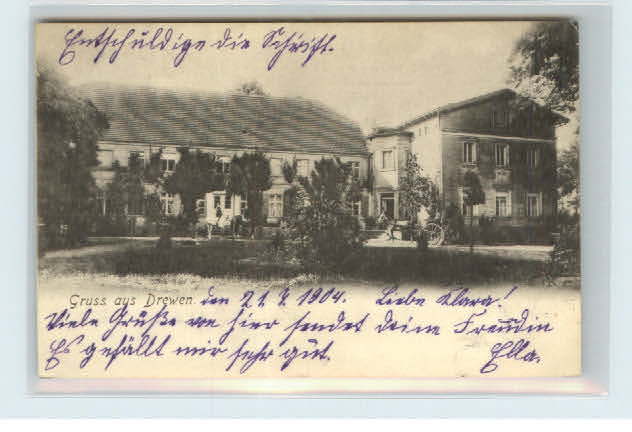 Entschuldige die Schrift.
Gruss aus Drewen. den 21.4.1904. Liebe Klara!
Viele Grüße von hier sendet deine Freundin
Es gefällt mir sehr gut. Ella.